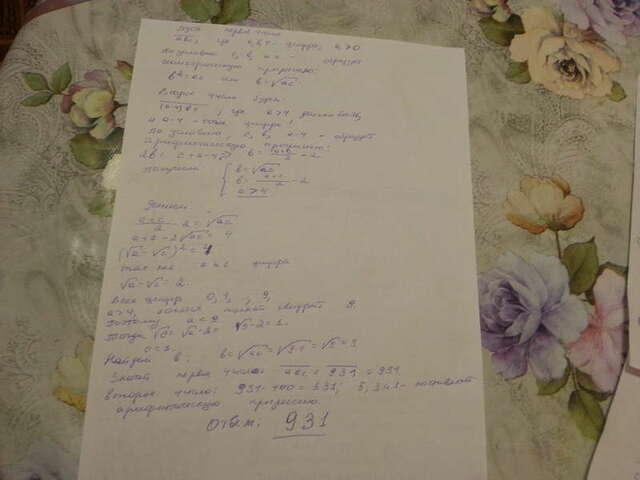 Пусть первое число
abc, где a,b,c - цифры, a>0
По условию c, b, a - образуют
геометрическую прогрессию:
b²=ac или b=√ac
Второе число будет
(a-4)bc, где a>4 должно быть,
a a-4 - тоже цифра!
По условию, c, b, a-4 - образуют
арифметическую прогрессию:
2b = c+a-4
получаем b=√ac
b= a+c/2 -2
a>4.
a+c/2 -2=√ac
a+c-2√ac = 4
(√a-√c)²=4
так как a и c цифры
√a-√c=2.
всех цифр 0,1, , 9,
a>4, полный квадрат 9.
Поэтому a=9
Тогда √c=√a-2= √9-2=1.
c=1.
Найдём b: b=√ac=√9·1=√9=3
Значит первое число: abc = 931 = 931.
второе число: 931-400=531; 5,3,1-
арифметическую прогрессию.
Ответ: 931